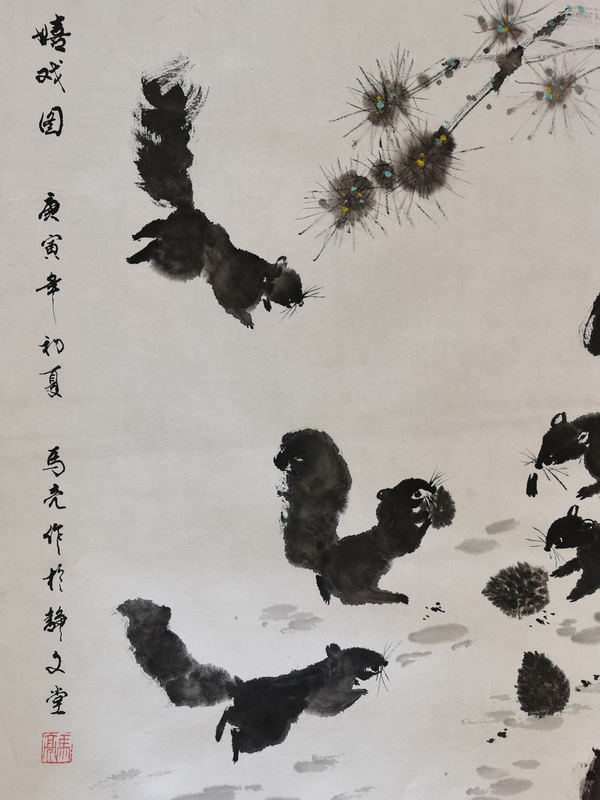 嬉戏图 庚寅年初夏 马亮作於静文堂
马亮